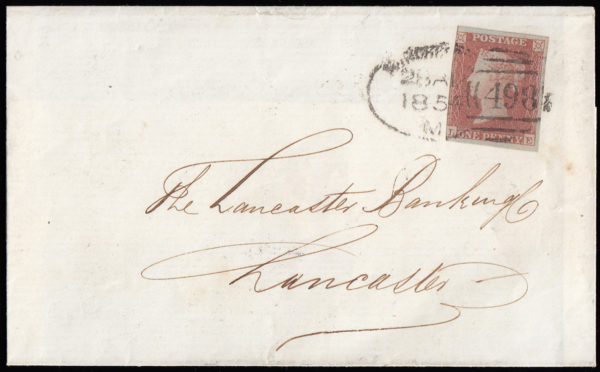 POSTAGE
28 A
1854
498
M
ONE PENNY
The Lancaster Banking Co
Lancaster